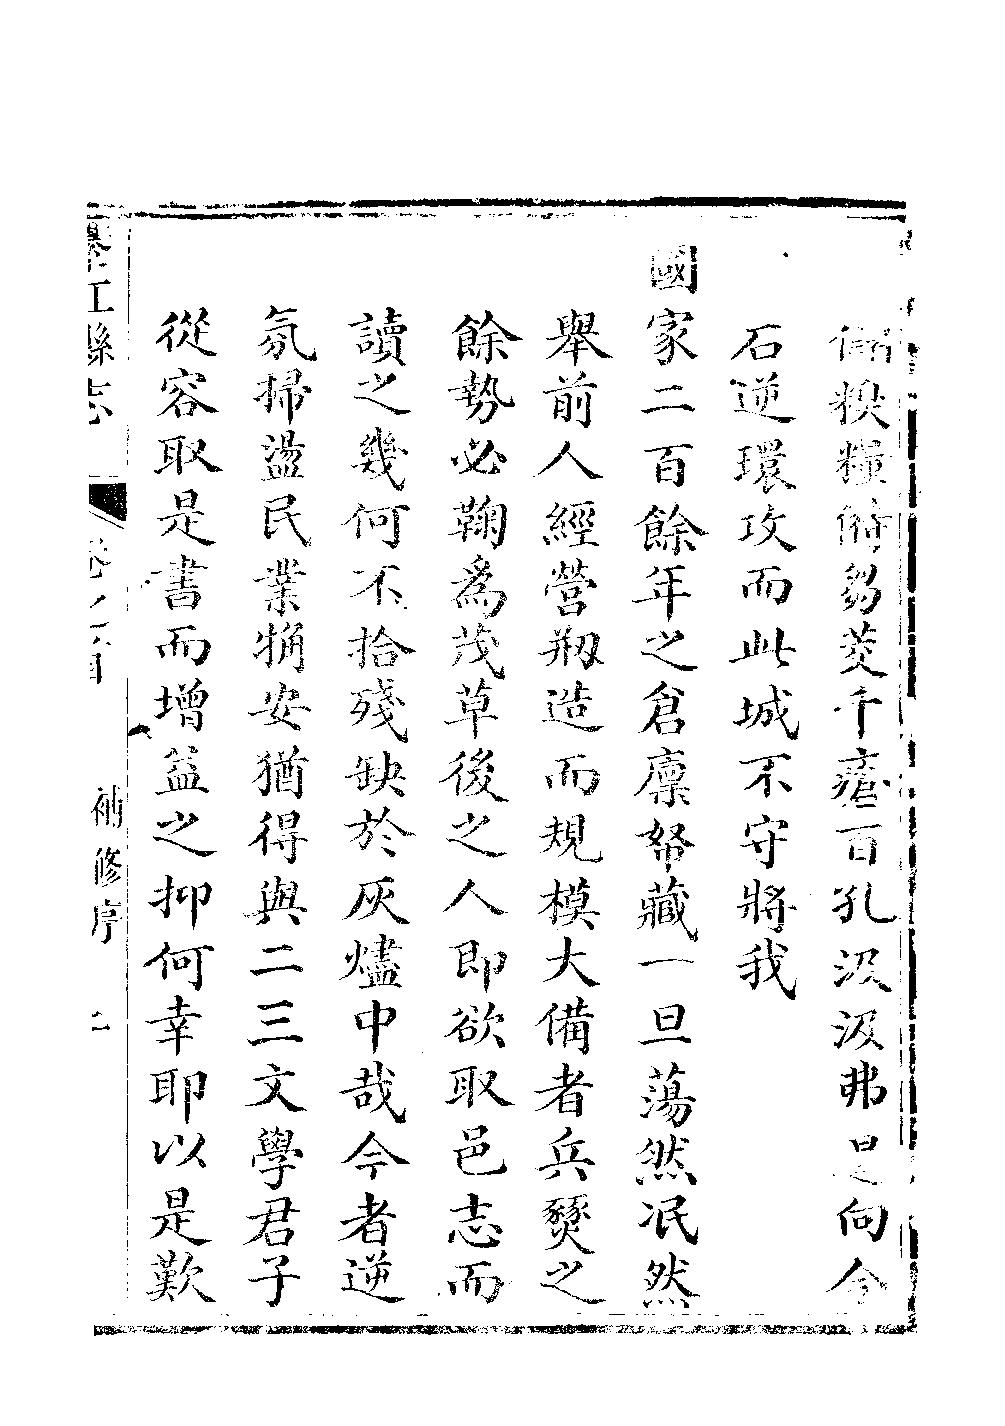 糗糧備芻茭千瘡百孔汲汲弗是向令
石逆環攻而此城不守將我
國家二百餘年之倉廩帑藏一旦蕩然泯然
舉前人經營剏造而規模大備者兵燹之
餘勢必鞠爲茂草後之人即欲取邑志而
讀之幾何不拾殘缺於灰燼中哉今者逆
氛掃盪民業牊安猶得與二三文學君子
從容取是書而增益之抑何幸耶以是歎
綦江縣志 卷之首 補修序 二